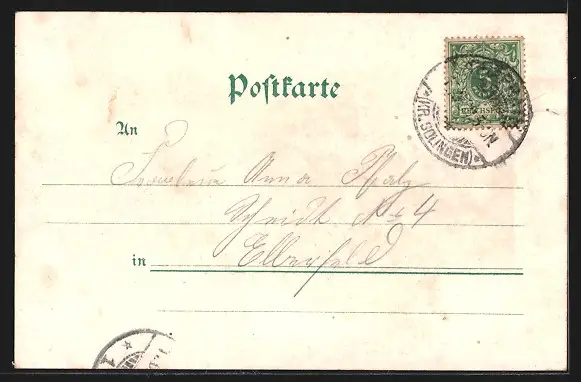 Postkarte
An
Fräulein Anna Pfalz
Scheidt No 4
in Elberfeld
5
REICHSPOST
(KR. SOLINGEN)